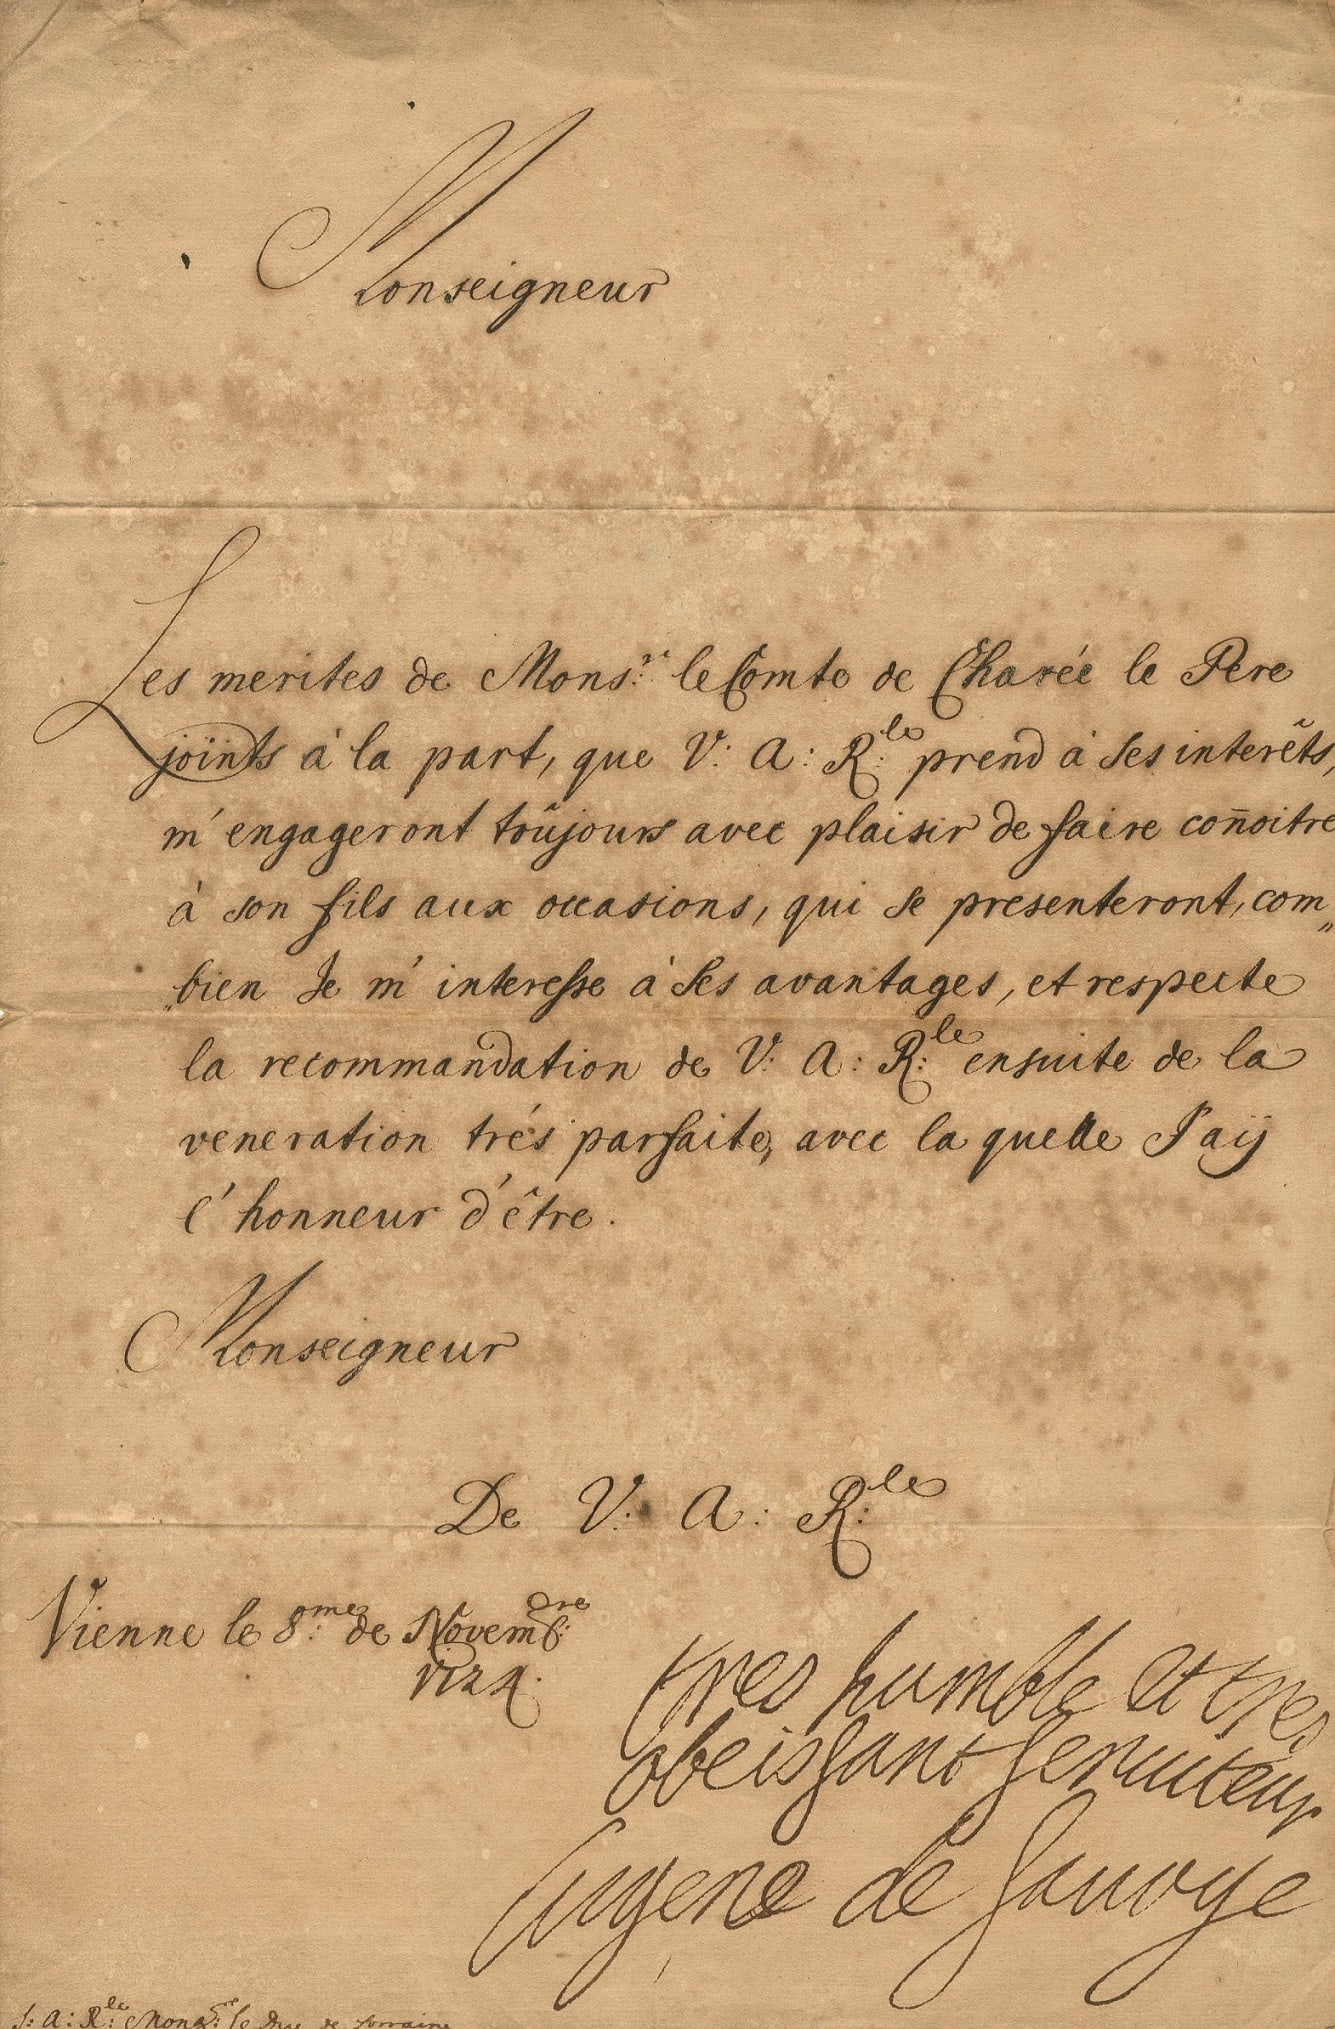 Monseigneur
Les merites de Mons:r le Comte de Charée le Pere
joïnts à la part, que V: A: R:le prend à ses interêts,
m'engageront toûjours avec plaisir de faire coñoitre
à son fils aux occasions, qui se presenteront, com„
„bien Je m'interesse à ses avantages, et respecte
la recommandation de V: A: R:le ensuite de la
veneration trés parfaite, avec la quelle J'aÿ
l'honneur d'être.
Monseigneur
De V: A: R:le
Vienne le 8:me de Novemb:re
1724.
tres humble et tres
obeissant seruiteur
Eugene de Sauoye
S: A: R:le Monsg:r le Duc de Lorraine